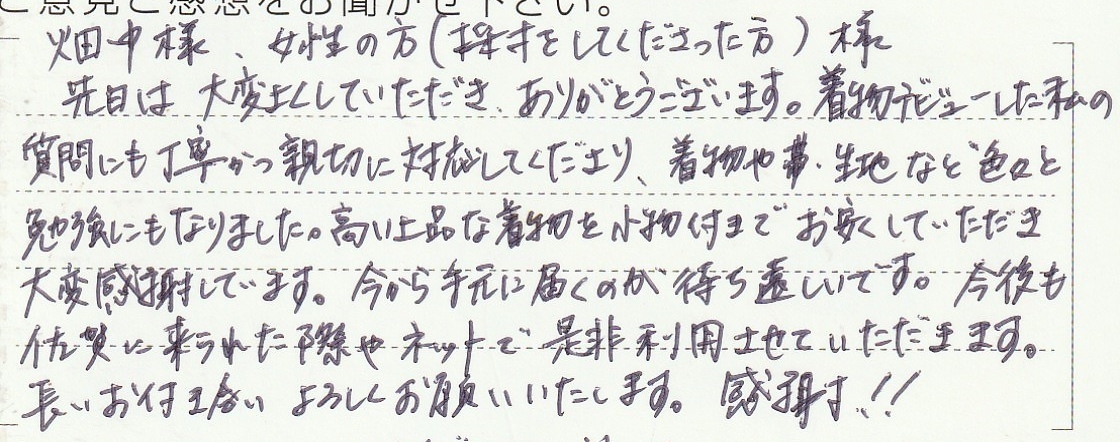 ご意見ご感想をお聞かせ下さい。
畑中様、女性の方(採寸をしてくださった方)様
先日は大変よくしていただき、ありがとうございます。着物デビューした私の
質問にも丁寧かつ親切に対応してくださり、着物や帯・生地など色々と
勉強にもなりました。高い上品な着物を小物付まで お安くしていただき
大変感謝しています。今から手元に届くのが待ち遠しいです。今後も
佐賀に来られた際やネットで是非利用させていただきます。
長いお付き合いよろしくお願いいたします。感謝!!